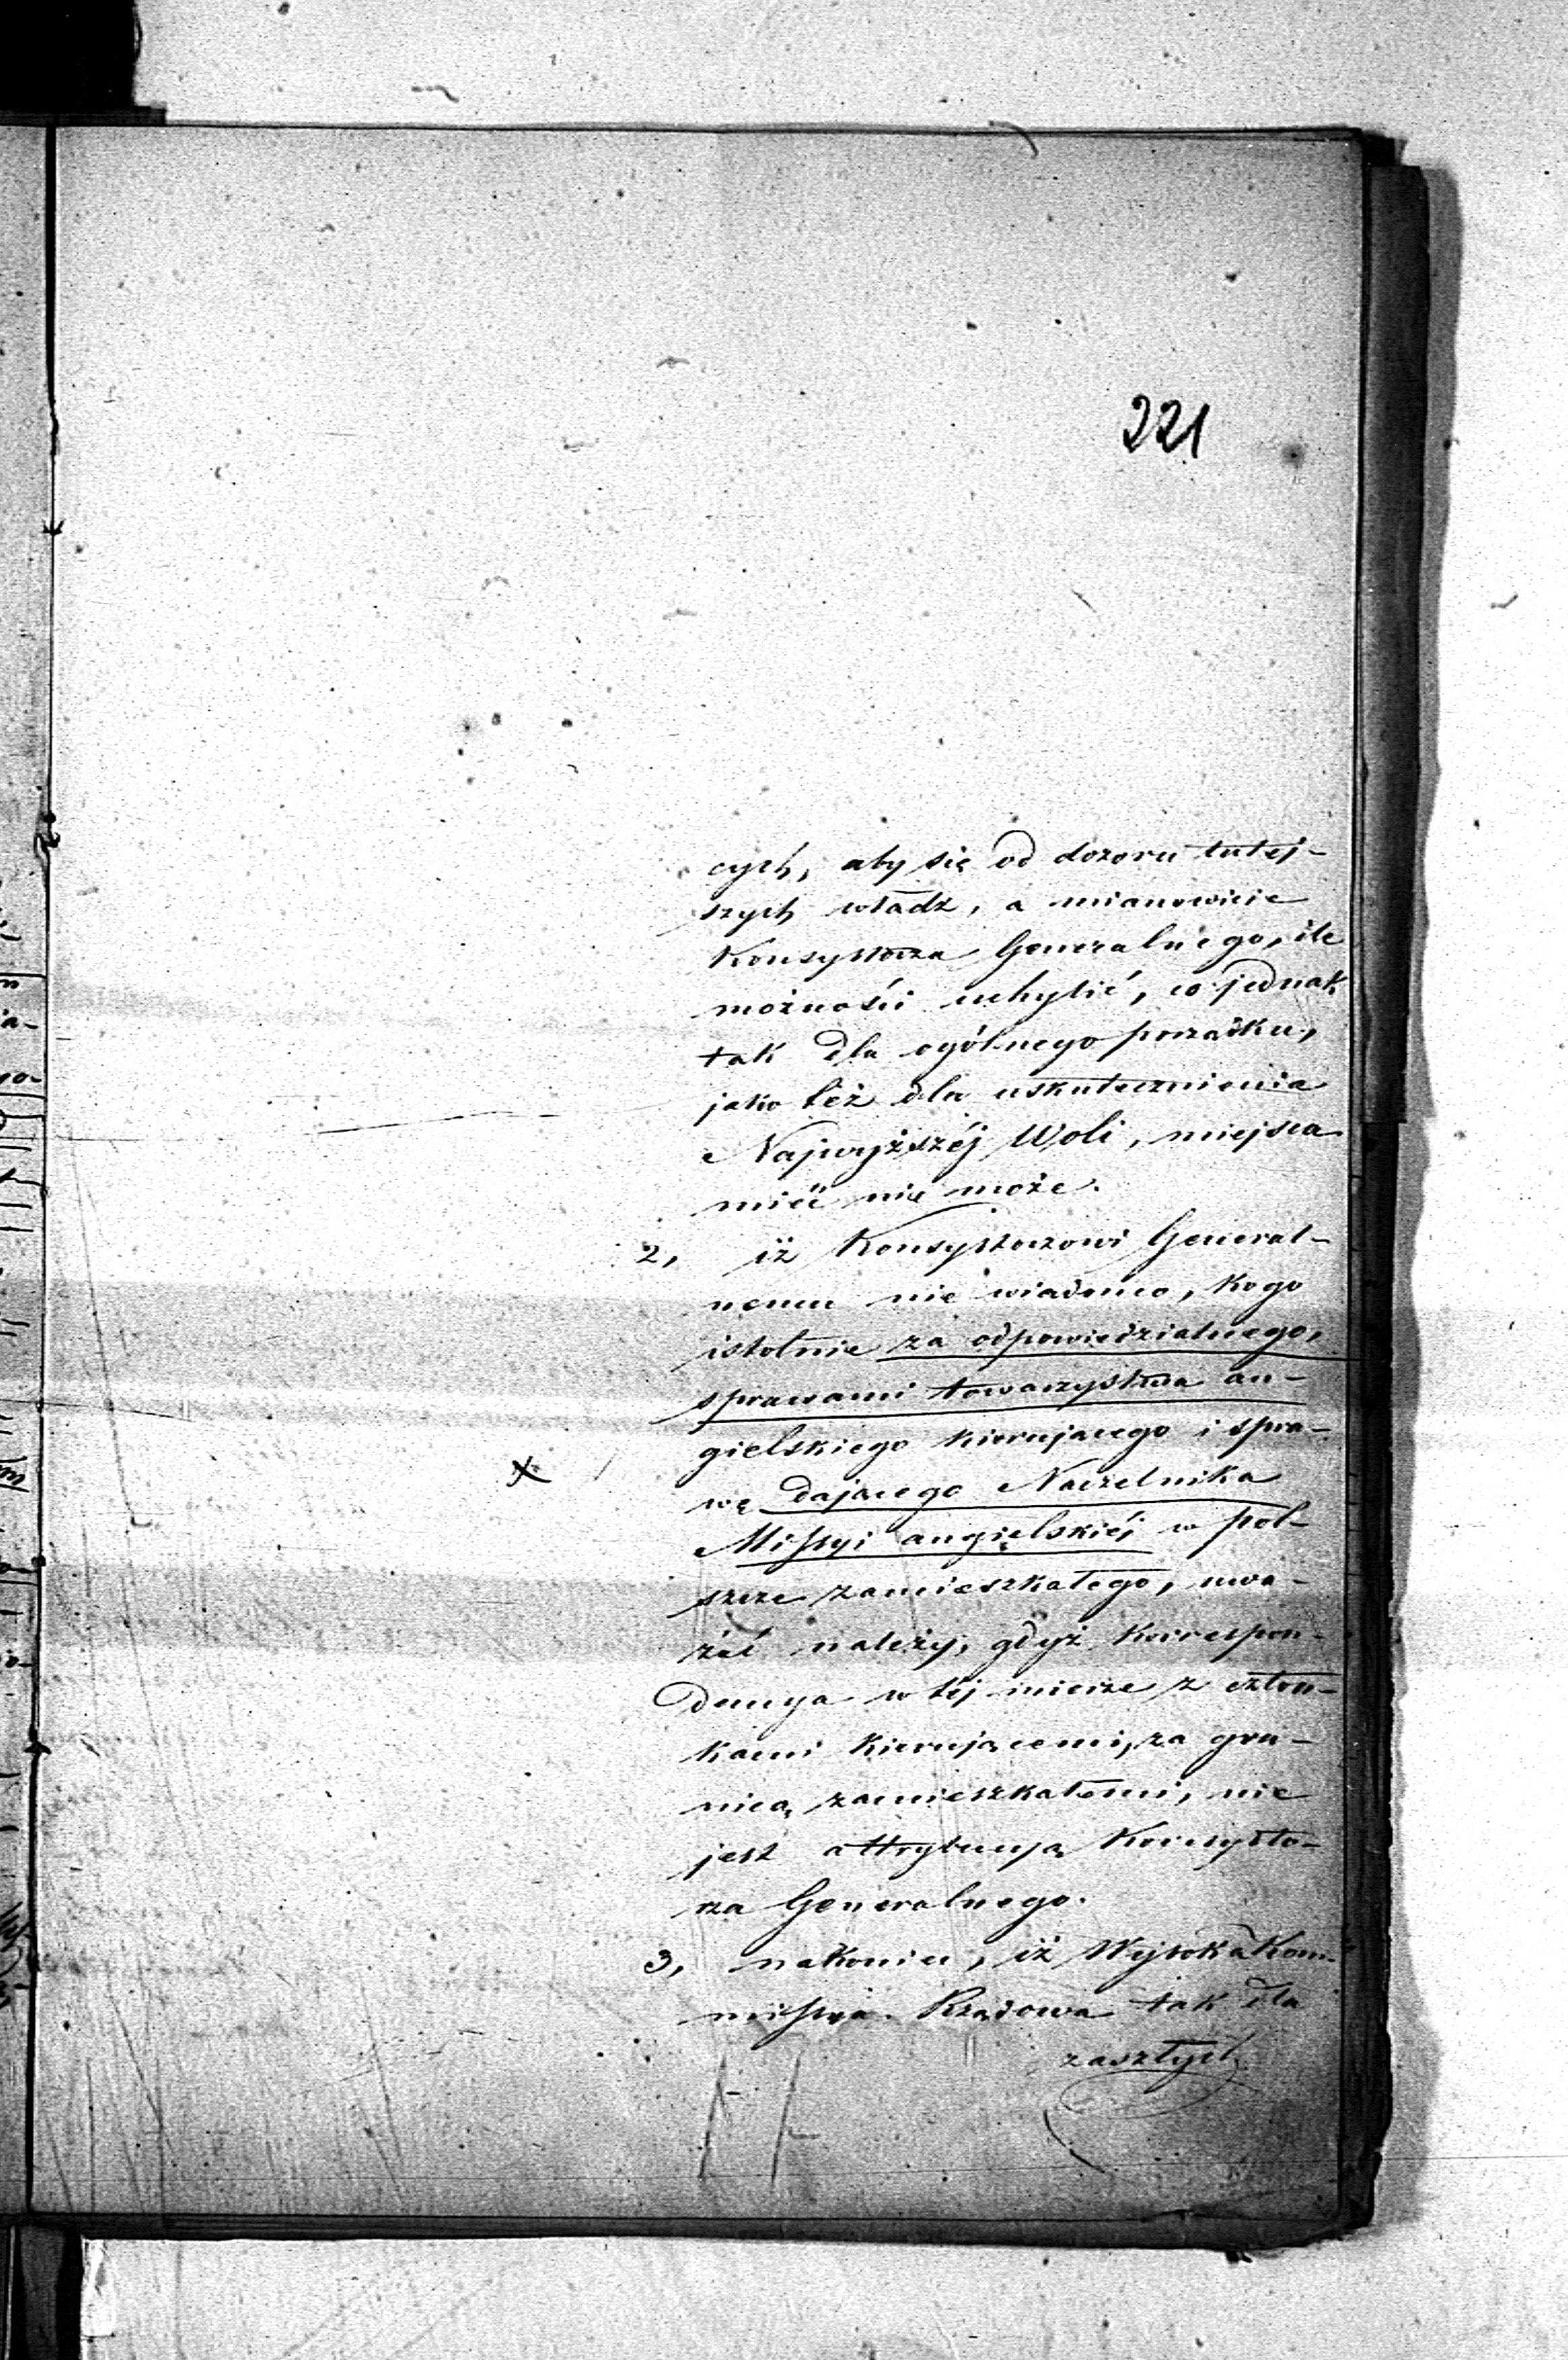 221
cych, aby się od dozoru tutej-
szych władz, a mianowicie
Konsystorza Generalnego, ile
możności uchylić, co jednak
tak dla ogólnego porządku,
jako też dla uskutecznienia
Najwyższéj Woli, miejsca
mieć nie może.
2, iż Konsystorzowi General-
nemu nie wiadomo, kogo
istotnie za odpowiedzialnego,
sprawami towarzystwa an-
gielskiego kierującego i spra-
wę dającego Naczelnika
Missyi angielskiéj w pol-
szcze zamieszkałego, uwa-
żać należy, gdyż korrespon-
dencya w téj mierze z człon-
kami kierującemi, za gra-
nicą zamieszkałemi, nie
jest attrybucyą Konsysto-
rza Generalnego.
3, nakoniec, iż Wysoka Kom-
missya Rządowa tak dla
zaszłych